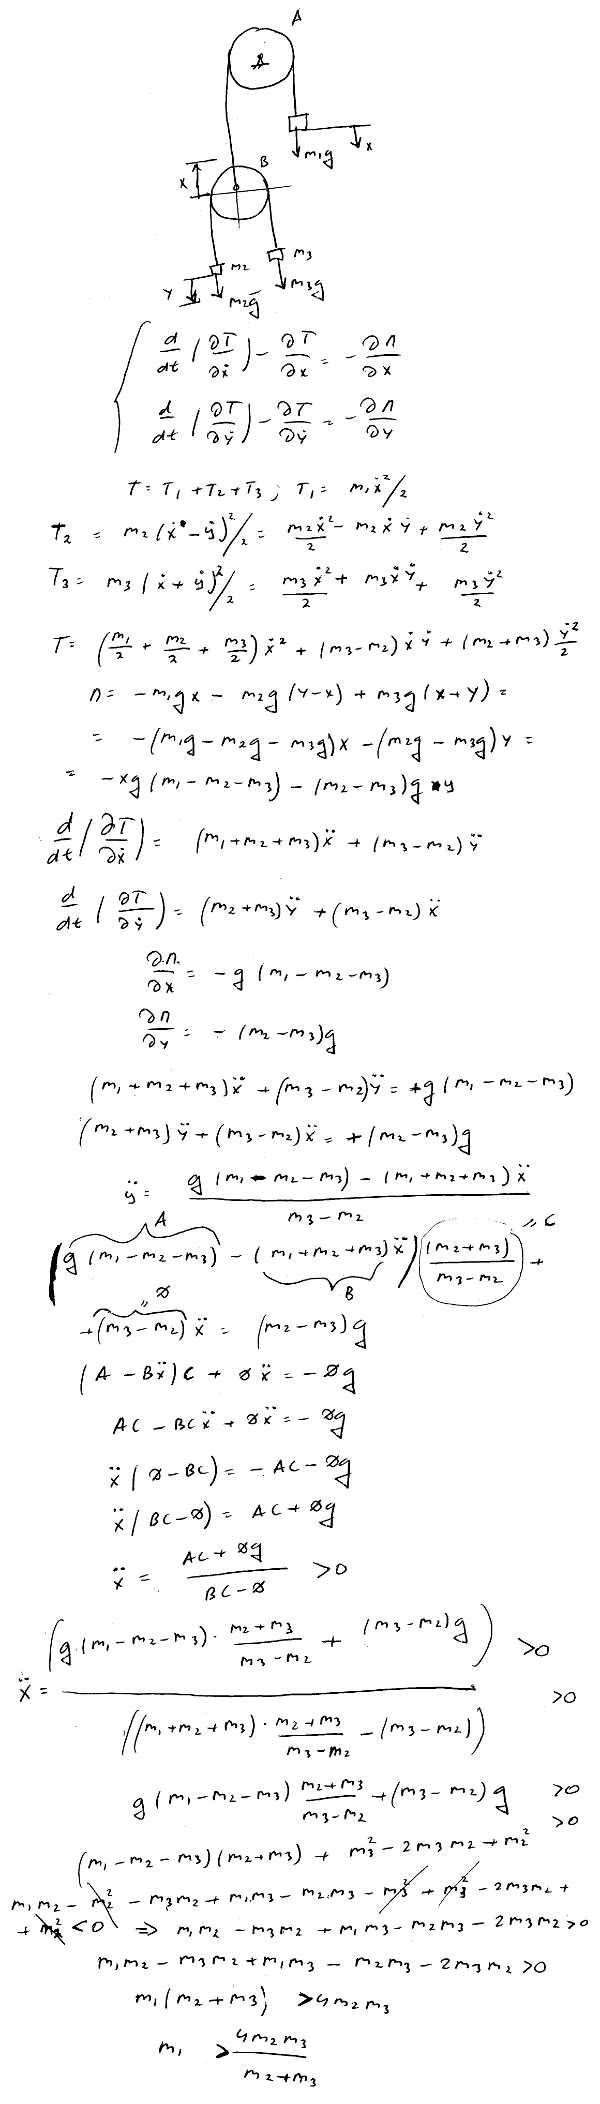 A
B
m₁g
x
B
x
m₂
m₃
y
m₂g
m₃g
d/dt (∂T/∂ẋ) - ∂T/∂x = - ∂П/∂x
d/dt (∂T/∂ẏ) - ∂T/∂y = - ∂П/∂y
T = T₁ + T₂ + T₃ ; T₁ = m₁ẋ²/2
T₂ = m₂(ẋ - ẏ)²/2 = m₂ẋ²/2 - m₂ẋẏ + m₂ẏ²/2
T₃ = m₃(ẋ + ẏ)²/2 = m₃ẋ²/2 + m₃ẋẏ + m₃ẏ²/2
T = (m₁/2 + m₂/2 + m₃/2) ẋ² + (m₃ - m₂) ẋẏ + (m₂ + m₃) ẏ²/2
П = - m₁gx - m₂g(y - x) + m₃g(x + y) =
= - (m₁g - m₂g - m₃g)x - (m₂g - m₃g)y =
= - xg(m₁ - m₂ - m₃) - (m₂ - m₃)g y
d/dt (∂T/∂ẋ) = (m₁ + m₂ + m₃)ẍ + (m₃ - m₂)ÿ
d/dt (∂T/∂ẏ) = (m₂ + m₃)ÿ + (m₃ - m₂)ẍ
∂П/∂x = - g(m₁ - m₂ - m₃)
∂П/∂y = - (m₂ - m₃)g
(m₁ + m₂ + m₃)ẍ + (m₃ - m₂)ÿ = +g(m₁ - m₂ - m₃)
(m₂ + m₃)ÿ + (m₃ - m₂)ẍ = +(m₂ - m₃)g
ÿ = (g(m₁ - m₂ - m₃) - (m₁ + m₂ + m₃)ẍ)/(m₃ - m₂)
A
= C
(g(m₁ - m₂ - m₃) - (m₁ + m₂ + m₃)ẍ) (m₂ + m₃)/(m₃ - m₂) +
B
= D
+ (m₃ - m₂)ẍ = (m₂ - m₃)g
(A - Bẍ)C + Dẍ = - Dg
AC - BCẍ + Dẍ = - Dg
ẍ(D - BC) = - AC - Dg
ẍ(BC - D) = AC + Dg
ẍ = (AC + Dg)/(BC - D) > 0
ẍ = (g(m₁ - m₂ - m₃) · (m₂ + m₃)/(m₃ - m₂) + (m₃ - m₂)g)/((m₁ + m₂ + m₃) · (m₂ + m₃)/(m₃ - m₂) - (m₃ - m₂)) > 0
> 0
g(m₁ - m₂ - m₃) (m₂ + m₃)/(m₃ - m₂) + (m₃ - m₂)g > 0
(m₁ - m₂ - m₃)(m₂ + m₃) + m₃² - 2m₃m₂ + m₂² > 0
m₁m₂ - m₂² - m₃m₂ + m₁m₃ - m₂m₃ - m₃² + m₃² - 2m₃m₂ +
+ m₂² < 0 ⇒ m₁m₂ - m₃m₂ + m₁m₃ - m₂m₃ - 2m₃m₂ > 0
m₁m₂ - m₃m₂ + m₁m₃ - m₂m₃ - 2m₃m₂ > 0
m₁(m₂ + m₃) > 4m₂m₃
m₁ > 4m₂m₃/(m₂ + m₃)